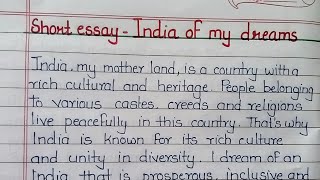 Short essay - India of my dreams
India, my mother land, is a country with a
rich cultural and heritage. People belonging
to various casies, creeds and religions
live peacefully in this country. That's why
India is known for its rich culture
and unity in diversity. I dream of an
India that is prosperous, inclusive and